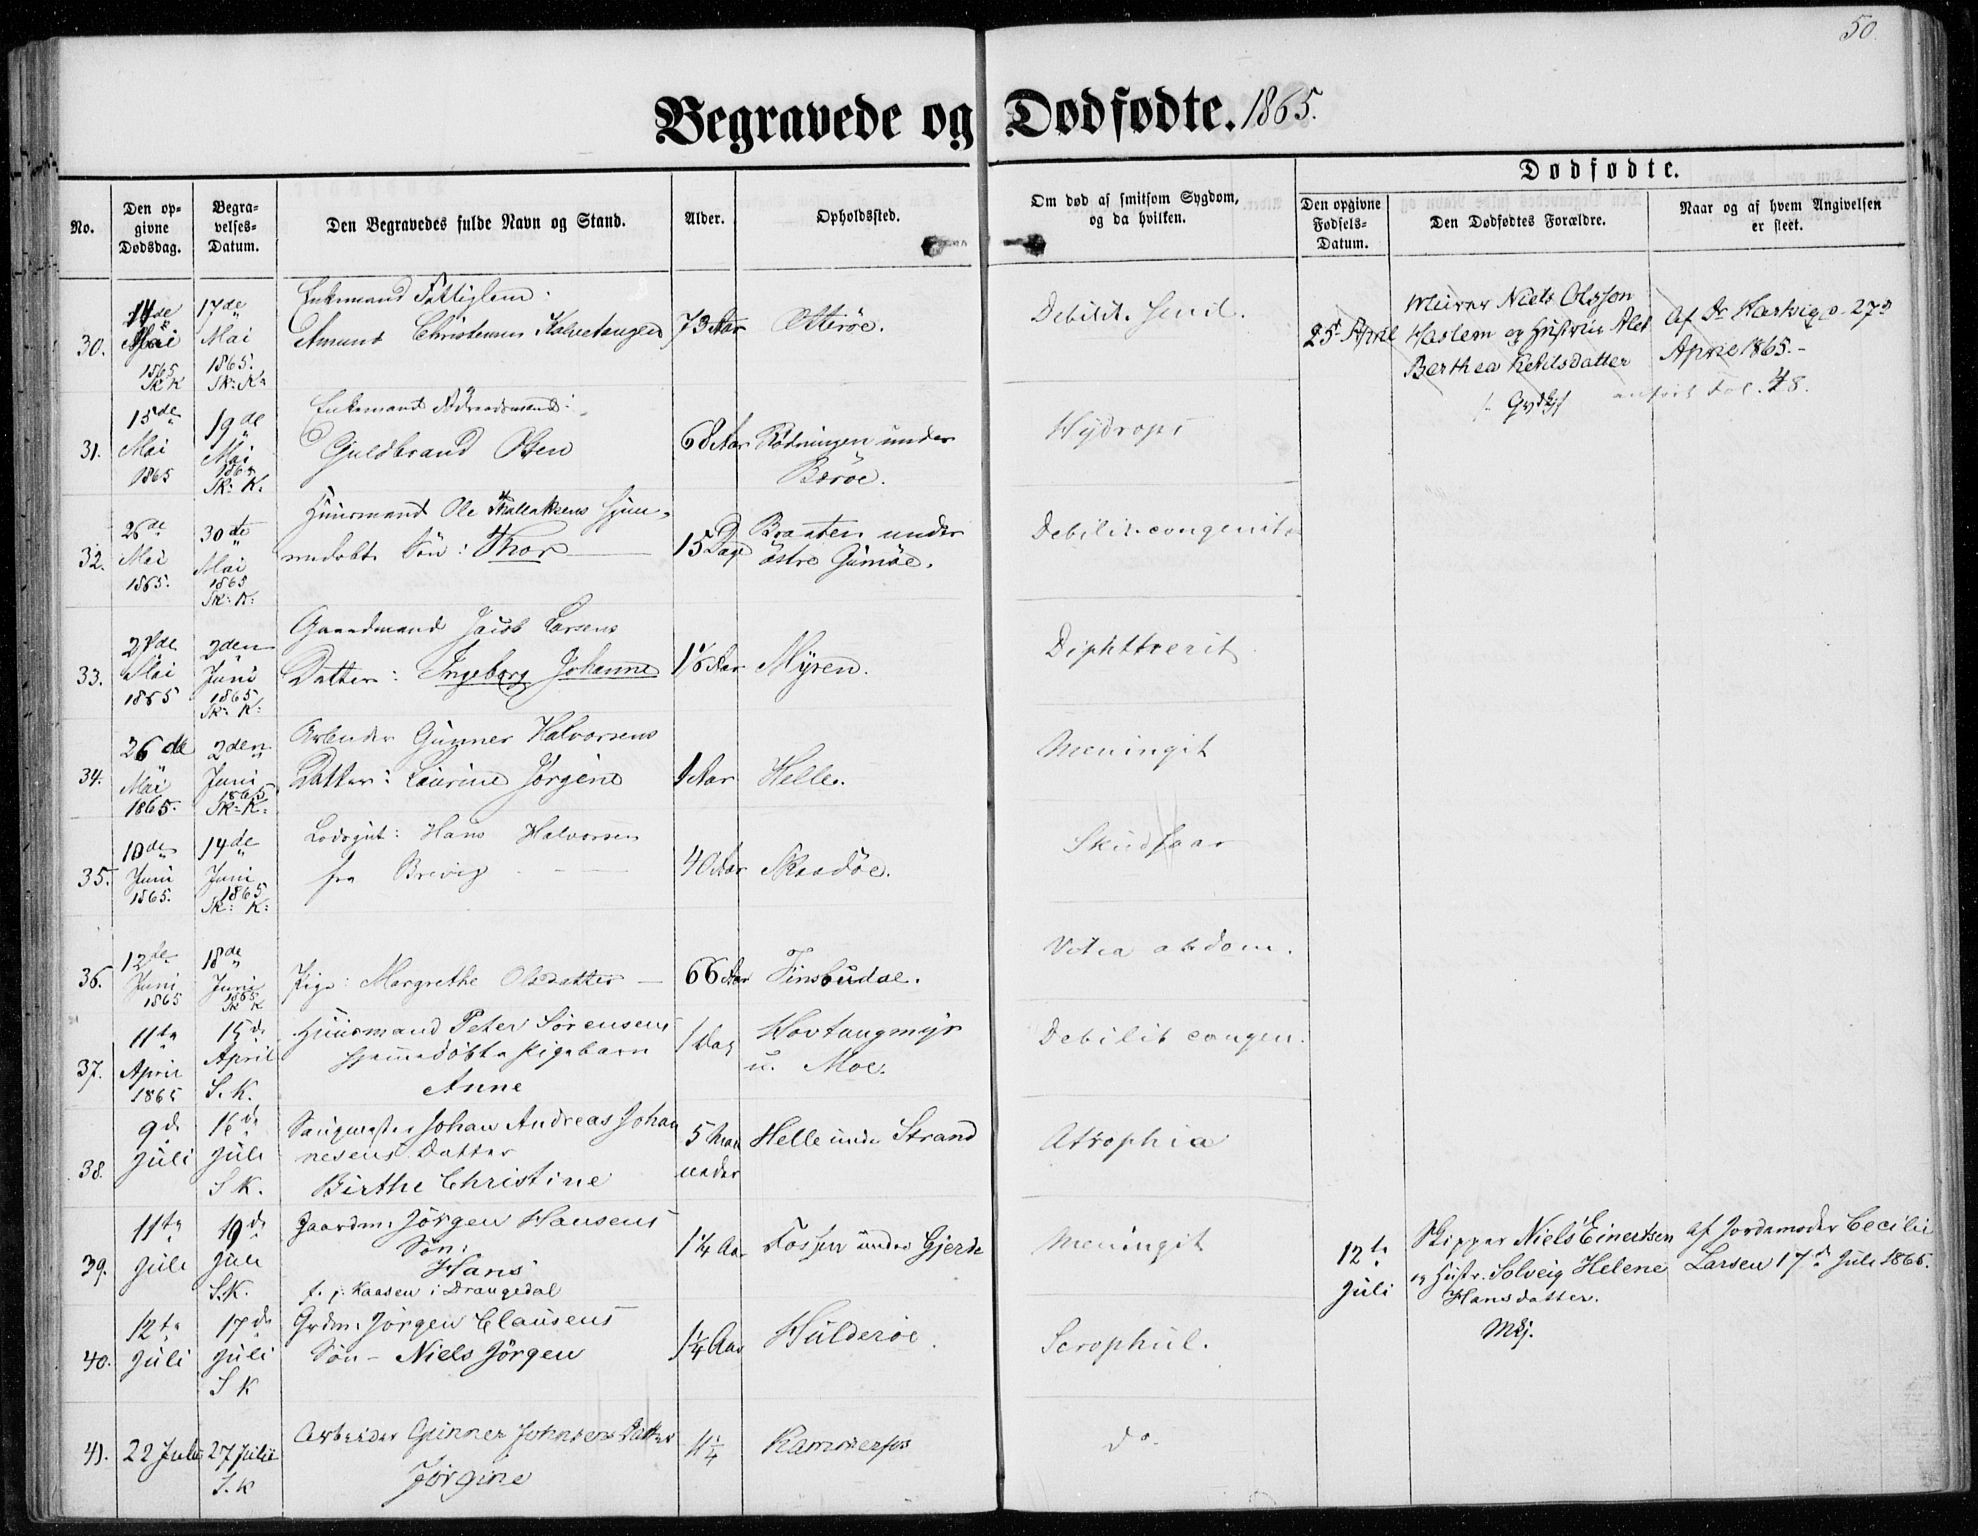 50
Begravede og Dødfødte. 1865.
Dødfødte.
No.
Den op-
givne
Dødsdag.
Begra-
velses-
Datum.
Den Begravedes fulde Navn og Stand.
Alder.
Opholdssted.
Om død af smitsom Sygdom,
og da hvilken.
Den opgivne
Fødsels-
Datum.
Den Dødfødtes Forældre.
Naar og af hvem Angivelsen
er skeet.
30.
14de
Mai
1865
Sk K
17de
Mai
1865.
Sk: K:
Enkemand Fattiglem:
Amund Christensen Kalvetangen
73 Aar
Otterøe.
Debilit. senil.
25 April
Niels Olsson
Haslem og Hustrue Alet
Berthea Ketilsdatter
Af Dr Hartvig d. 27d
April 1865.-
anført Fol. 48.
31.
15de
Mai
1865
19de
Mai
1865
Sk: K:
Enkemand
Guldbrand Olsen
68 Aar
Rødningen under
Barøe.
Hydrops
32.
26de
Mai
1865.
30de
Mai
1865
Sk: K:
Huusmand Ole Thallaksens hjem-
medøbte Søn: Thor
15 Dage
Braaten under
østre Gumøe.
Debilit. congenita
33.
Mai
1865
2den
Juni
1865
Sk: K:
Gaardmand Jacob Larsens
Datter: Ingeborg Johanne
Aar
Myren.
Diphtterit
34.
26de
Mai
1865.
2den
Juni
1865
Sk: K:
Arbeider Gunner Halvorsens
Datter: Laurine Jørgine
1 Aar
Helle.
Meningit
35.
10de
Juni
1865.
14de
Juni
1865
Sk: K:
Lodsgut: Hans Halvorsen
fra Brevig
40 Aar
Skaadøe.
Skudsaar
36.
12te
Juni
1865
18de
Juni
1865
Sk K
Pige: Margrethe Olsdatter
66 Aar
Finsbudal.
Vitia abdom.
37.
11te
April
1865
15de
April
S. K.
Huusmand Peter Sørensens
hjemmedøbte Pigebarn
Anne
1 Dag
Hovtangmyr
u. Moe.
Debilit congen.
38.
9de
Juli
16de
Juli
S K.
Saugmester Johan Andreas Johan
nesens Datter
Birthe Christine
5 Maa
neder
Helle under Strand
Atrophia
39.
11te
Juli
19de
Juli
S.K.
Gaardm. Jørgen Hansens
Søn:
Hans
f. p. Kaasen i Drangedal
1 1/4 Aar
Fossen under Gjerde
Meningit
12te
Juli
Skipper Niels Einertsen
og Hustr. Solveig Helene
Hansdatter.
af Jordemoder Cecilie
Larsen 17de Juli 1865.
40.
12te
Juli
17de
Juli
S K
Grdm. Jørgen Clausens
Søn - Niels Jørgen
1 1/4 Aar
Hulderøe.
Scrophul.
41.
22 Juli
27 Juli
S. K
Arbeider Gunner Johnsens Datter
Jørgine
1/4
do.